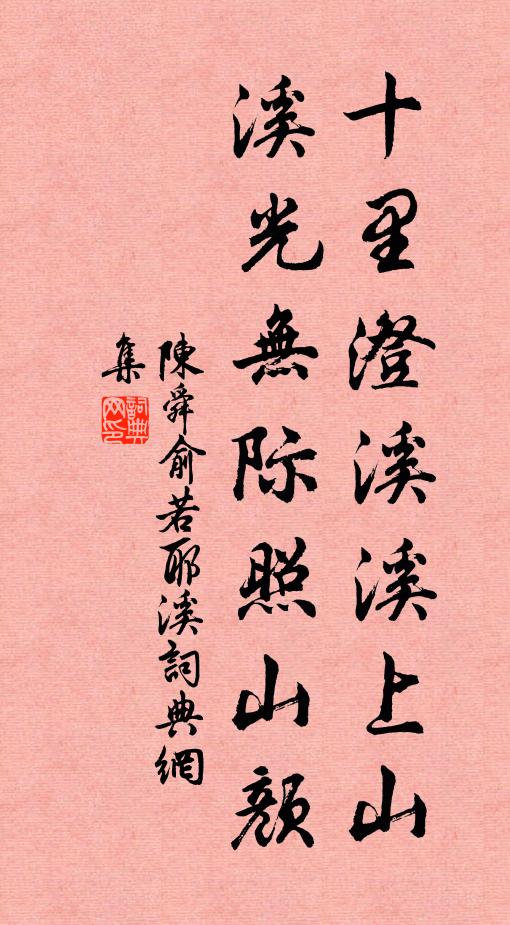 十里澄溪溪上山
溪光無际照山颜
陳舜俞若耶溪詞典網
集
詞典
网印